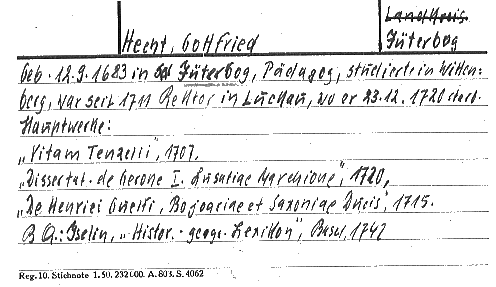 Landkreis
Hecht, Gottfried Jüterbog
Geb. 12.9.1683 in Jüterbog, Pädagog, studierte in Witten-
berg, war seit 1711 Rektor in Luckau, wo er 23.12.1720 starb.
Hauptwerke:
„Vitam Tenzelii", 1707,
„Dissertat. de Gerone I. Lusatiae Marchione", 1720,
„De Henrici Guelfi, Bojoariae et Saxoniae Ducis", 1715.
B Q.: Iselin, „Histor.-geogr. Lexikon", Basel, 1742
Reg. 10. Stichnote 1. 50. 232000. A. 803. S. 4062